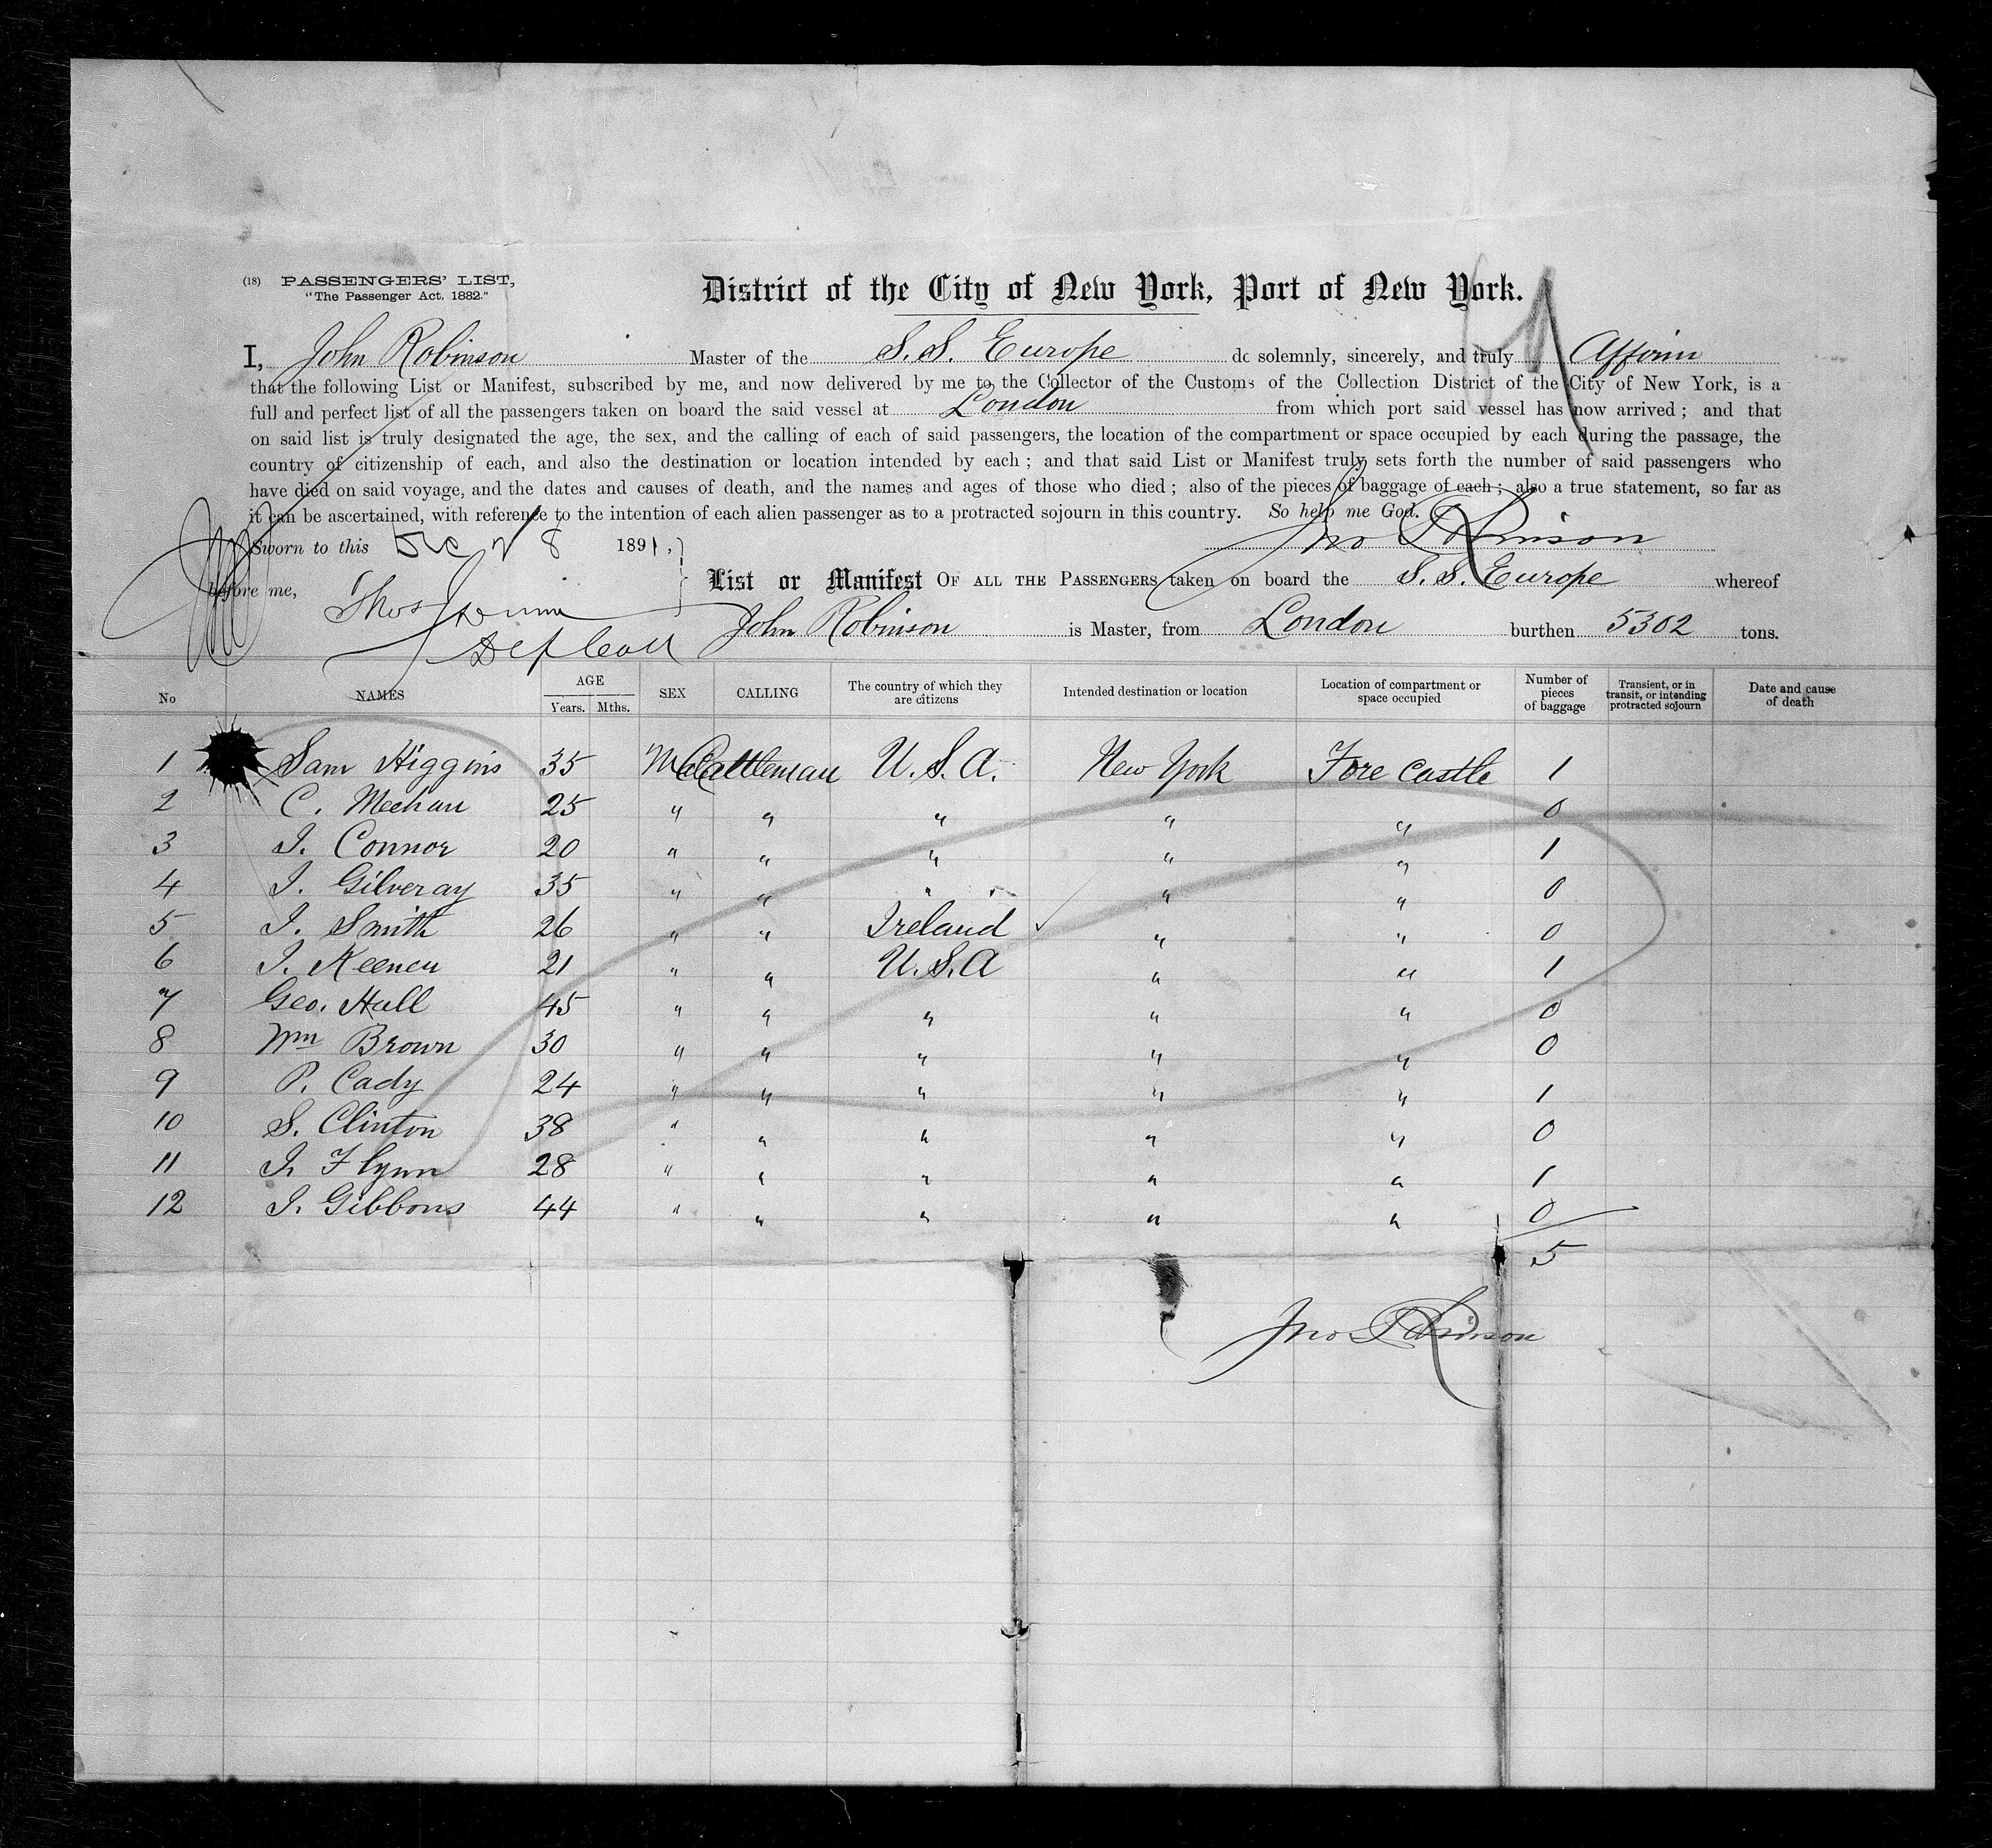 (18) PASSENGERS' LIST,
"The Passenger Act, 1882."
District of the City of New York, Port of New York.
I, John Robinson Master of the S.S. Europe do solemnly, sincerely, and truly Affirm
that the following List or Manifest, subscribed by me, and now delivered by me to the Collector of the Customs of the Collection District of the City of New York, is a
full and perfect list of all the passengers taken on board the said vessel at London from which port said vessel has now arrived; and that
on said list is truly designated the age, the sex, and the calling of each of said passengers, the location of the compartment or space occupied by each during the passage, the
country of citizenship of each, and also the destination or location intended by each; and that said List or Manifest truly sets forth the number of said passengers who
have died on said voyage, and the dates and causes of death, and the names and ages of those who died; also of the pieces of baggage of each; also a true statement, so far as
it can be ascertained, with reference to the intention of each alien passenger as to a protracted sojourn in this country. So help me God.
Sworn to this Dec 28 1891, Jno Robinson
before me, Thos List or Manifest OF ALL THE PASSENGERS taken on board the S.S. Europe whereof
Dep Coll John Robinson is Master, from London burthen 5302 tons.
No NAMES AGE Years. Mths. SEX CALLING The country of which they are citizens Intended destination or location Location of compartment or space occupied Number of pieces of baggage Transient, or in transit, or intending protracted sojourn Date and cause of death
1 Sam Higgins 35 Male Cattleman U.S.A. New York Fore Castle 1
2 C. Meehan 25 " " " " " 0
3 J. Connor 20 " " " " " 1
4 J. Gilveray 35 " " " " " 0
5 J. Smith 26 " " Ireland " " 0
6 J. Keenen 21 " " U.S.A " " 1
7 Geo. Hull 45 " " " " " 0
8 Wm Brown 30 " " " " " 0
9 P. Cady 24 " " " " " 1
10 S. Clinton 38 " " " " " 0
11 J. Flynn 28 " " " " " 1
12 J. Gibbons 44 " " " " " 0
5
Jno Robinson